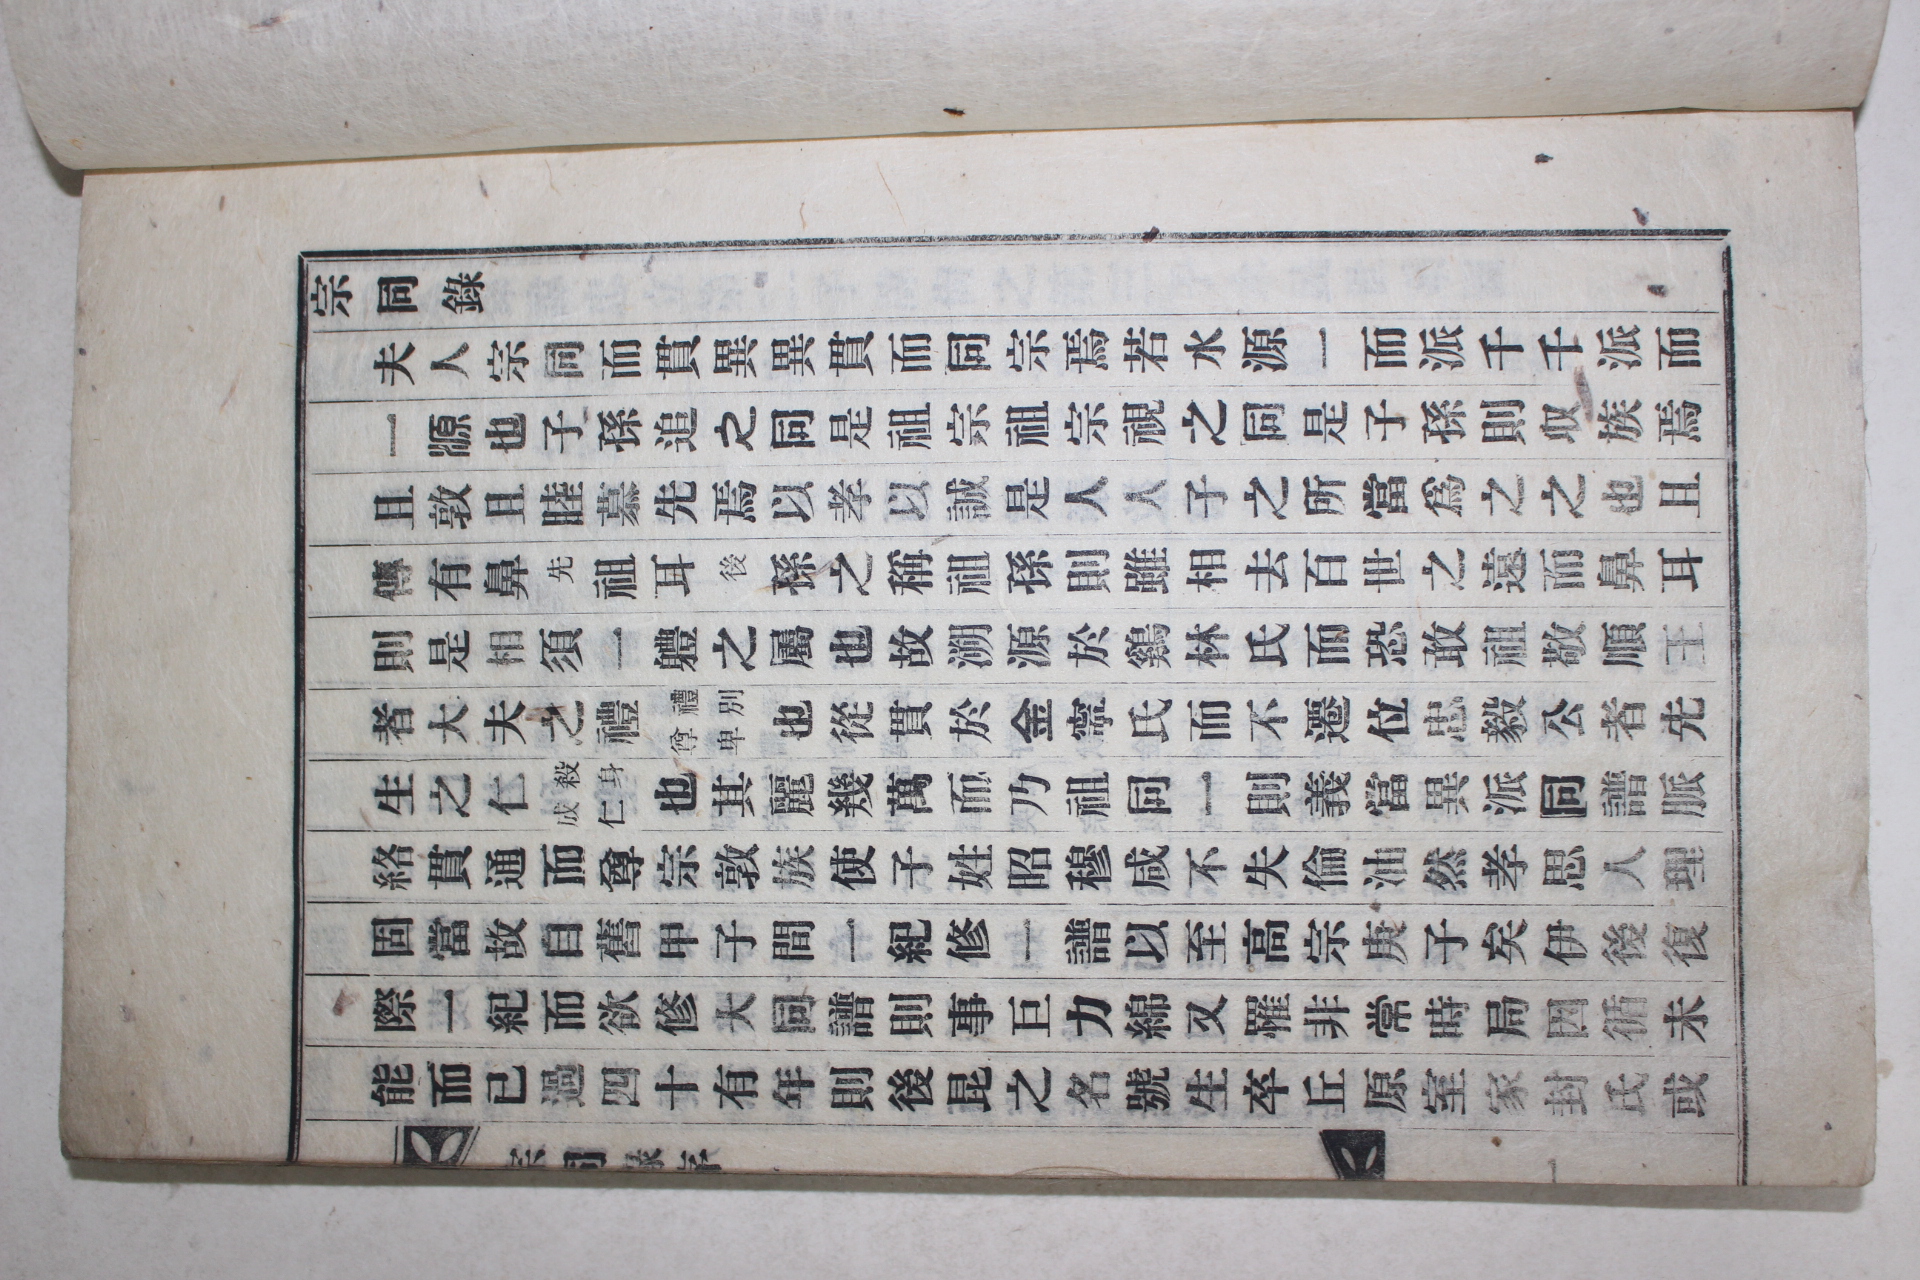 宗同錄
夫人宗同而貫異異貫而同宗焉若水源一而派千千派而
一源也子孫追之同是祖宗祖宗視之同是子孫則収族焉
且敦且睦慕先焉以孝以誠是人人子之所當爲之之也且
傳有鼻先祖耳後孫之稱祖孫則雖相去百世之遠而鼻耳
則是相須一軆之屬也故溯源於鷄林氏而恐敢祖敬順王
者大夫之禮禮別尊卑也從貫於金寧氏而不遷位忠毅公者先
生之仁殺身成仁也其麗幾萬而乃祖同一則義當異派同譜脈
絡貫通而尊宗敦族使子姓昭穆咸不失倫油然孝思人理
固當故自舊甲子間一紀修一譜以至高宗庚子矣伊後復
際一紀而欲修大同譜則事巨力綿又罹非常時局因循未
能而已過四十有年則後昆之名號生卒丘原室家封氏或
宗同錄序
一